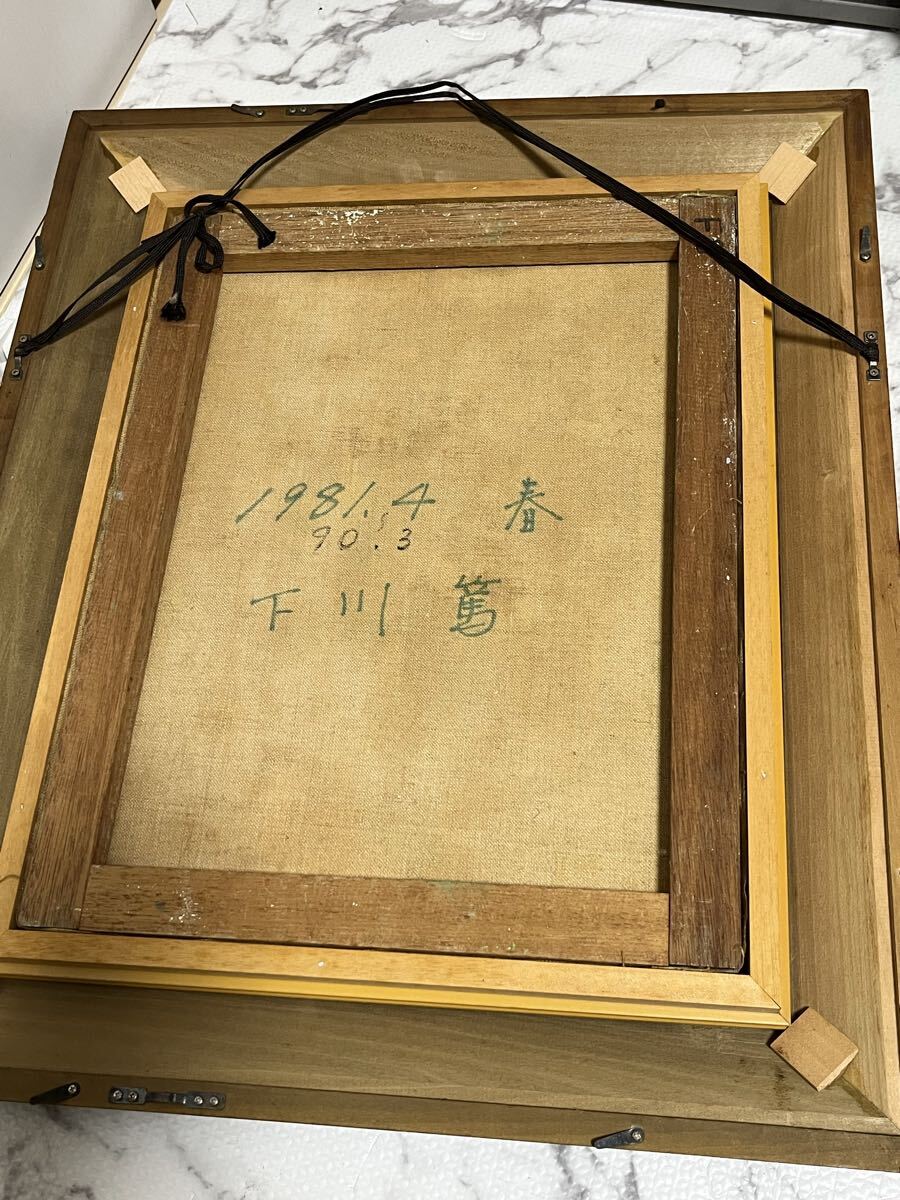 1981.4 春
90.3
下川 篤